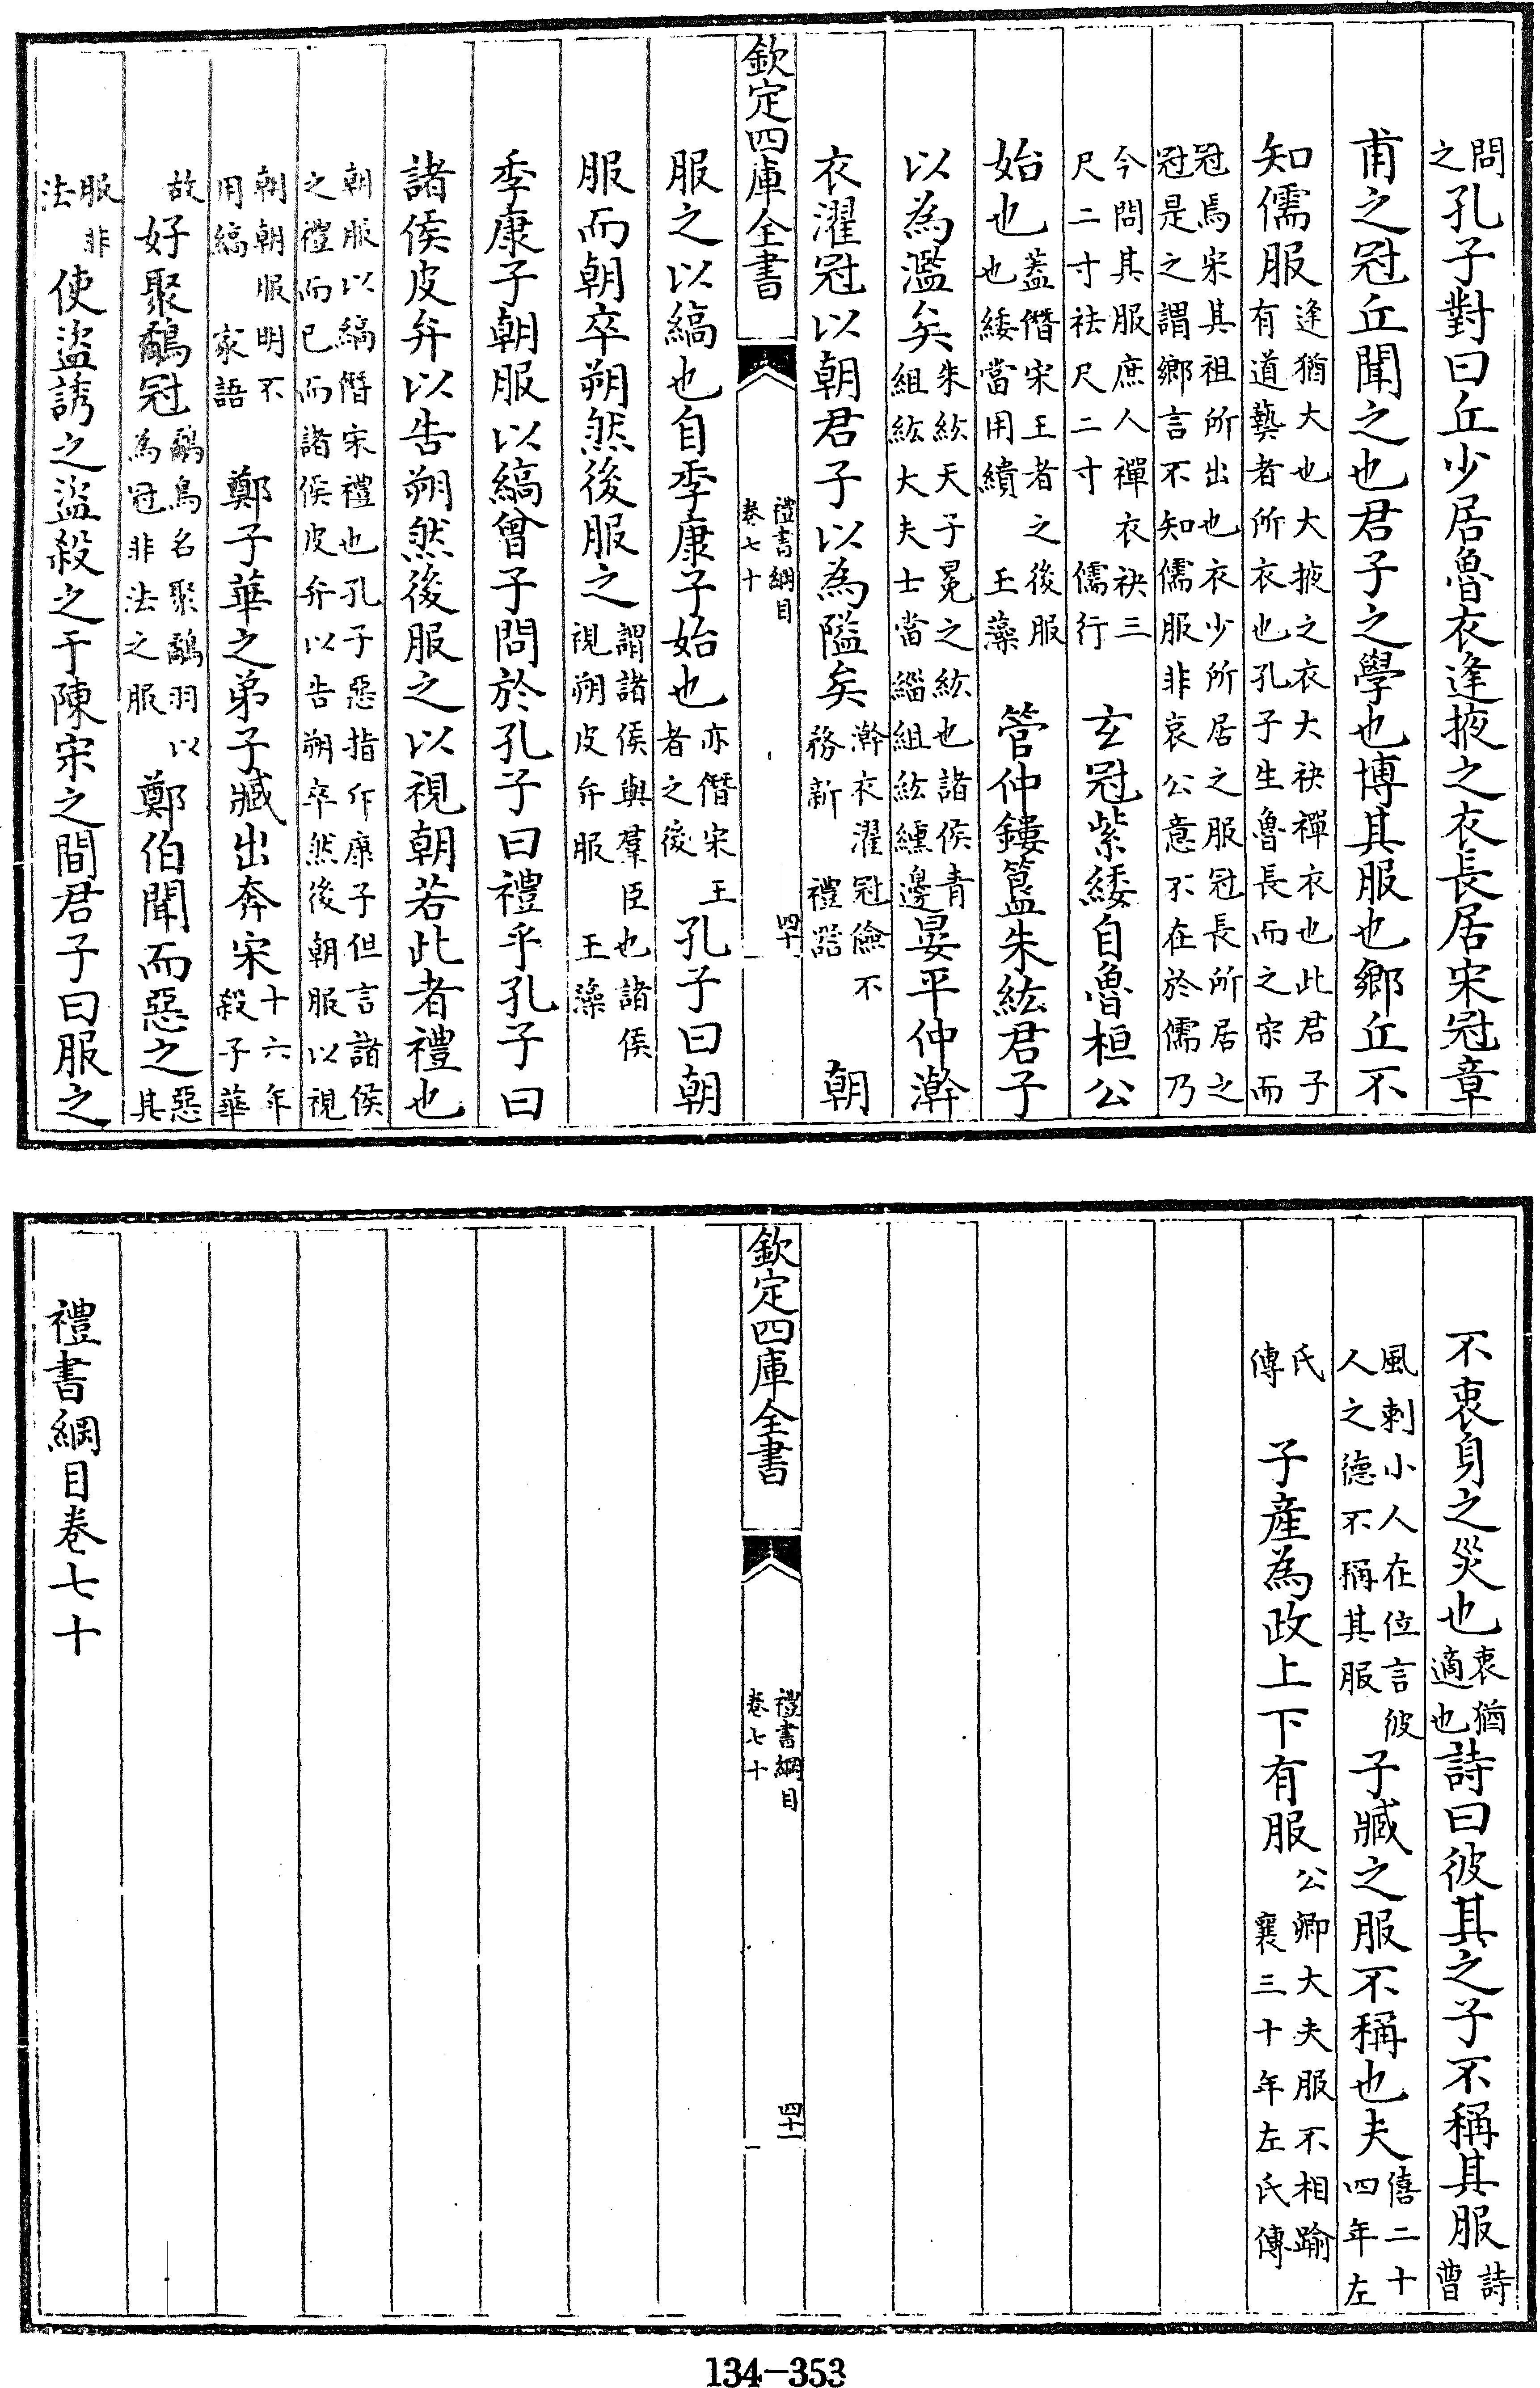 問之孔子對曰丘少居魯衣逢掖之衣長居宋冠章
甫之冠丘聞之也君子之學也博其服也鄉丘不
知儒服逢猶大也大掖之衣大袂襌衣也此君子有道藝者所衣也孔子生魯長而之宋而
冠焉宋其祖所出也衣少所居之服冠長所居之冠是之謂鄉言不知儒服非哀公意不在於儒乃
今問其服庶人襌衣袂三尺二寸袪尺二寸 儒行 玄冠紫緌自魯桓公
始也蓋僭宋王者之後服也緌當用繢 王藻 管仲鏤簋朱紘君子
以為濫矣朱紘天子冕之紘也諸侯青組紘大夫士當緇組紘纁邊晏平仲澣
衣濯冠以朝君子以為隘矣澣衣濯冠儉不務新 禮器 朝
欽定四庫全書 禮書綱目卷七十 四十
服之以縞也自季康子始也亦僭宋王者之後孔子曰朝
服而朝卒朔然後服之謂諸侯與羣臣也諸侯視朔皮弁服 王藻
季康子朝服以縞曾子問於孔子曰禮乎孔子曰
諸侯皮弁以告朔然後服之以視朝若此者禮也
朝服以縞僭宋禮也孔子惡指斥康子但言諸侯之禮而已而諸侯皮弁以告朔卒然後朝服以視
朝朝服明不用縞 家語 鄭子華之弟子臧出奔宋十六年殺子華
故好聚鷸冠鷸鳥名聚鷸羽以為冠非法之服鄭伯聞而惡之惡其
服非法使盜誘之盜殺之于陳宋之間君子曰服之
不衷身之災也衷猶適也詩曰彼其之子不稱其服詩曹
風刺小人在位言彼人之德不稱其服子臧之服不稱也夫僖二十四年左
氏傳 子產為政上下有服公卿大夫服不相踰 襄三十年左氏傳
欽定四庫全書 禮書綱目卷七十 四十一
禮書綱目卷七十
134-353